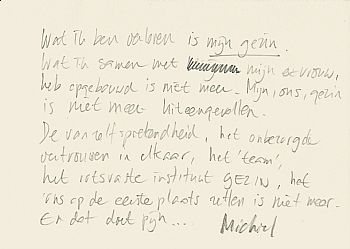 Wat ik ben verloren is mijn gezin.
Wat ik samen met mijn ex vrouw,
heb opgebouwd is niet meer. Mijn, ons, gezin
is niet meer. Uiteengevallen.
De vanzelfsprekendheid, het onbezorgde
vertrouwen in elkaar, het 'team',
het rotsvaste instituut GEZIN, het
'ons op de eerste plaats zetten is niet meer.
En dat doet pijn... Michiel